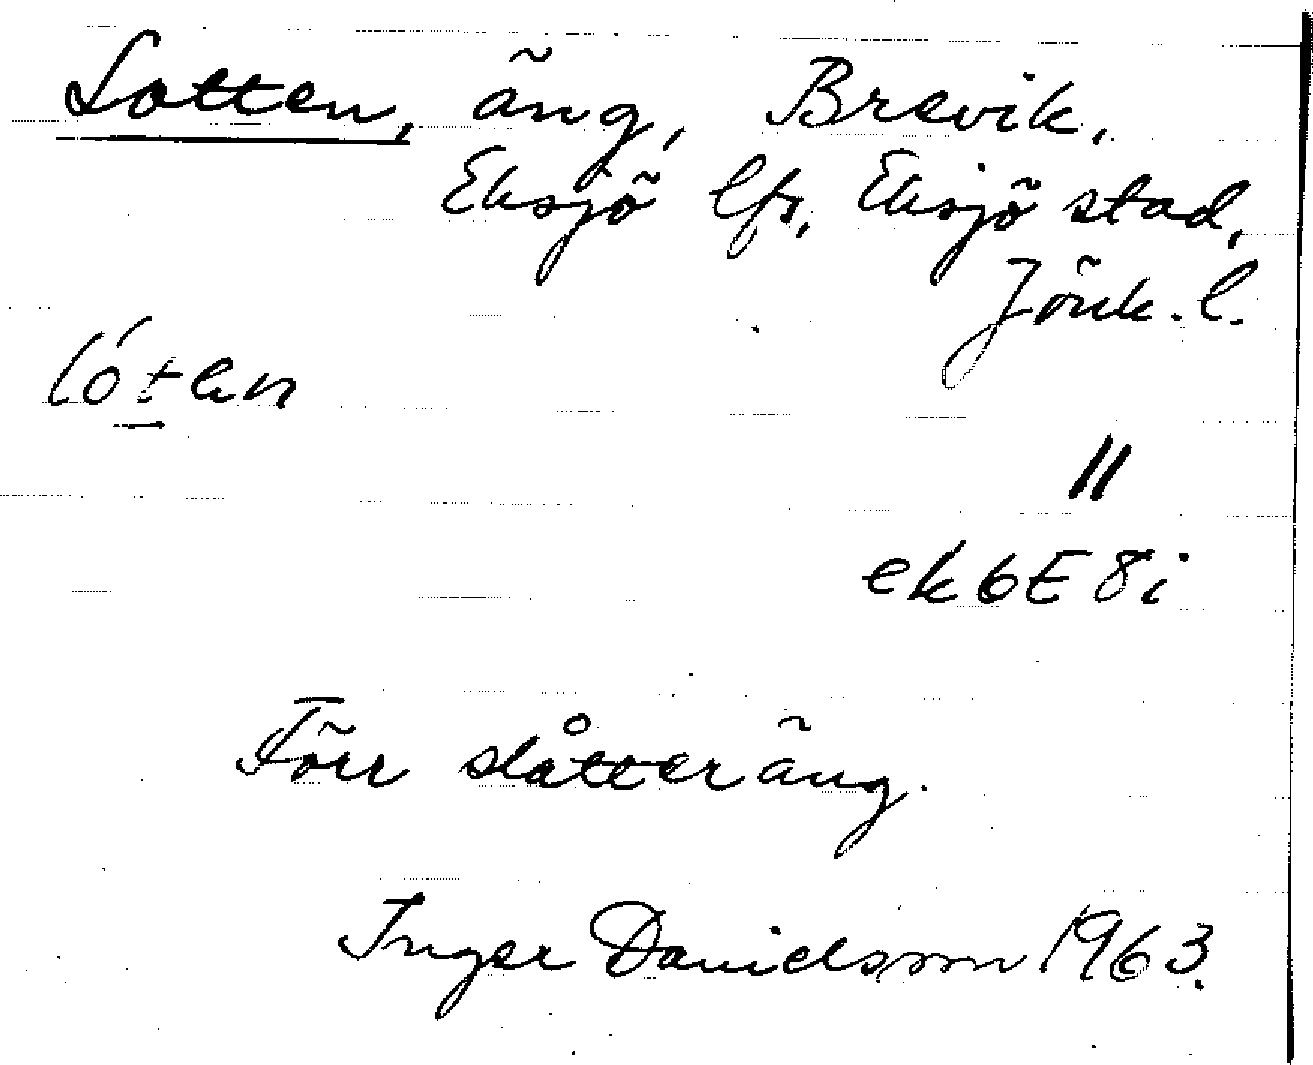 Lotten, äng, Brevik,
Eksjö lfs, Eksjö stad,
Jönk. l.
lóten
||
ek 6E 8i
Förr slåtteräng.
Inger Davidsson 1963.